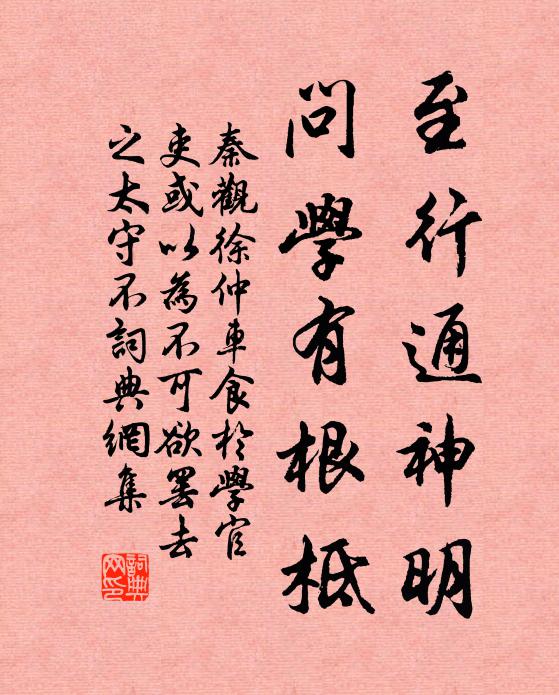 至行通神明
問學有根柢
秦觀徐仲車食於學官
吏或以為不可欲罷去
之太守不詞典網集
詞典網印